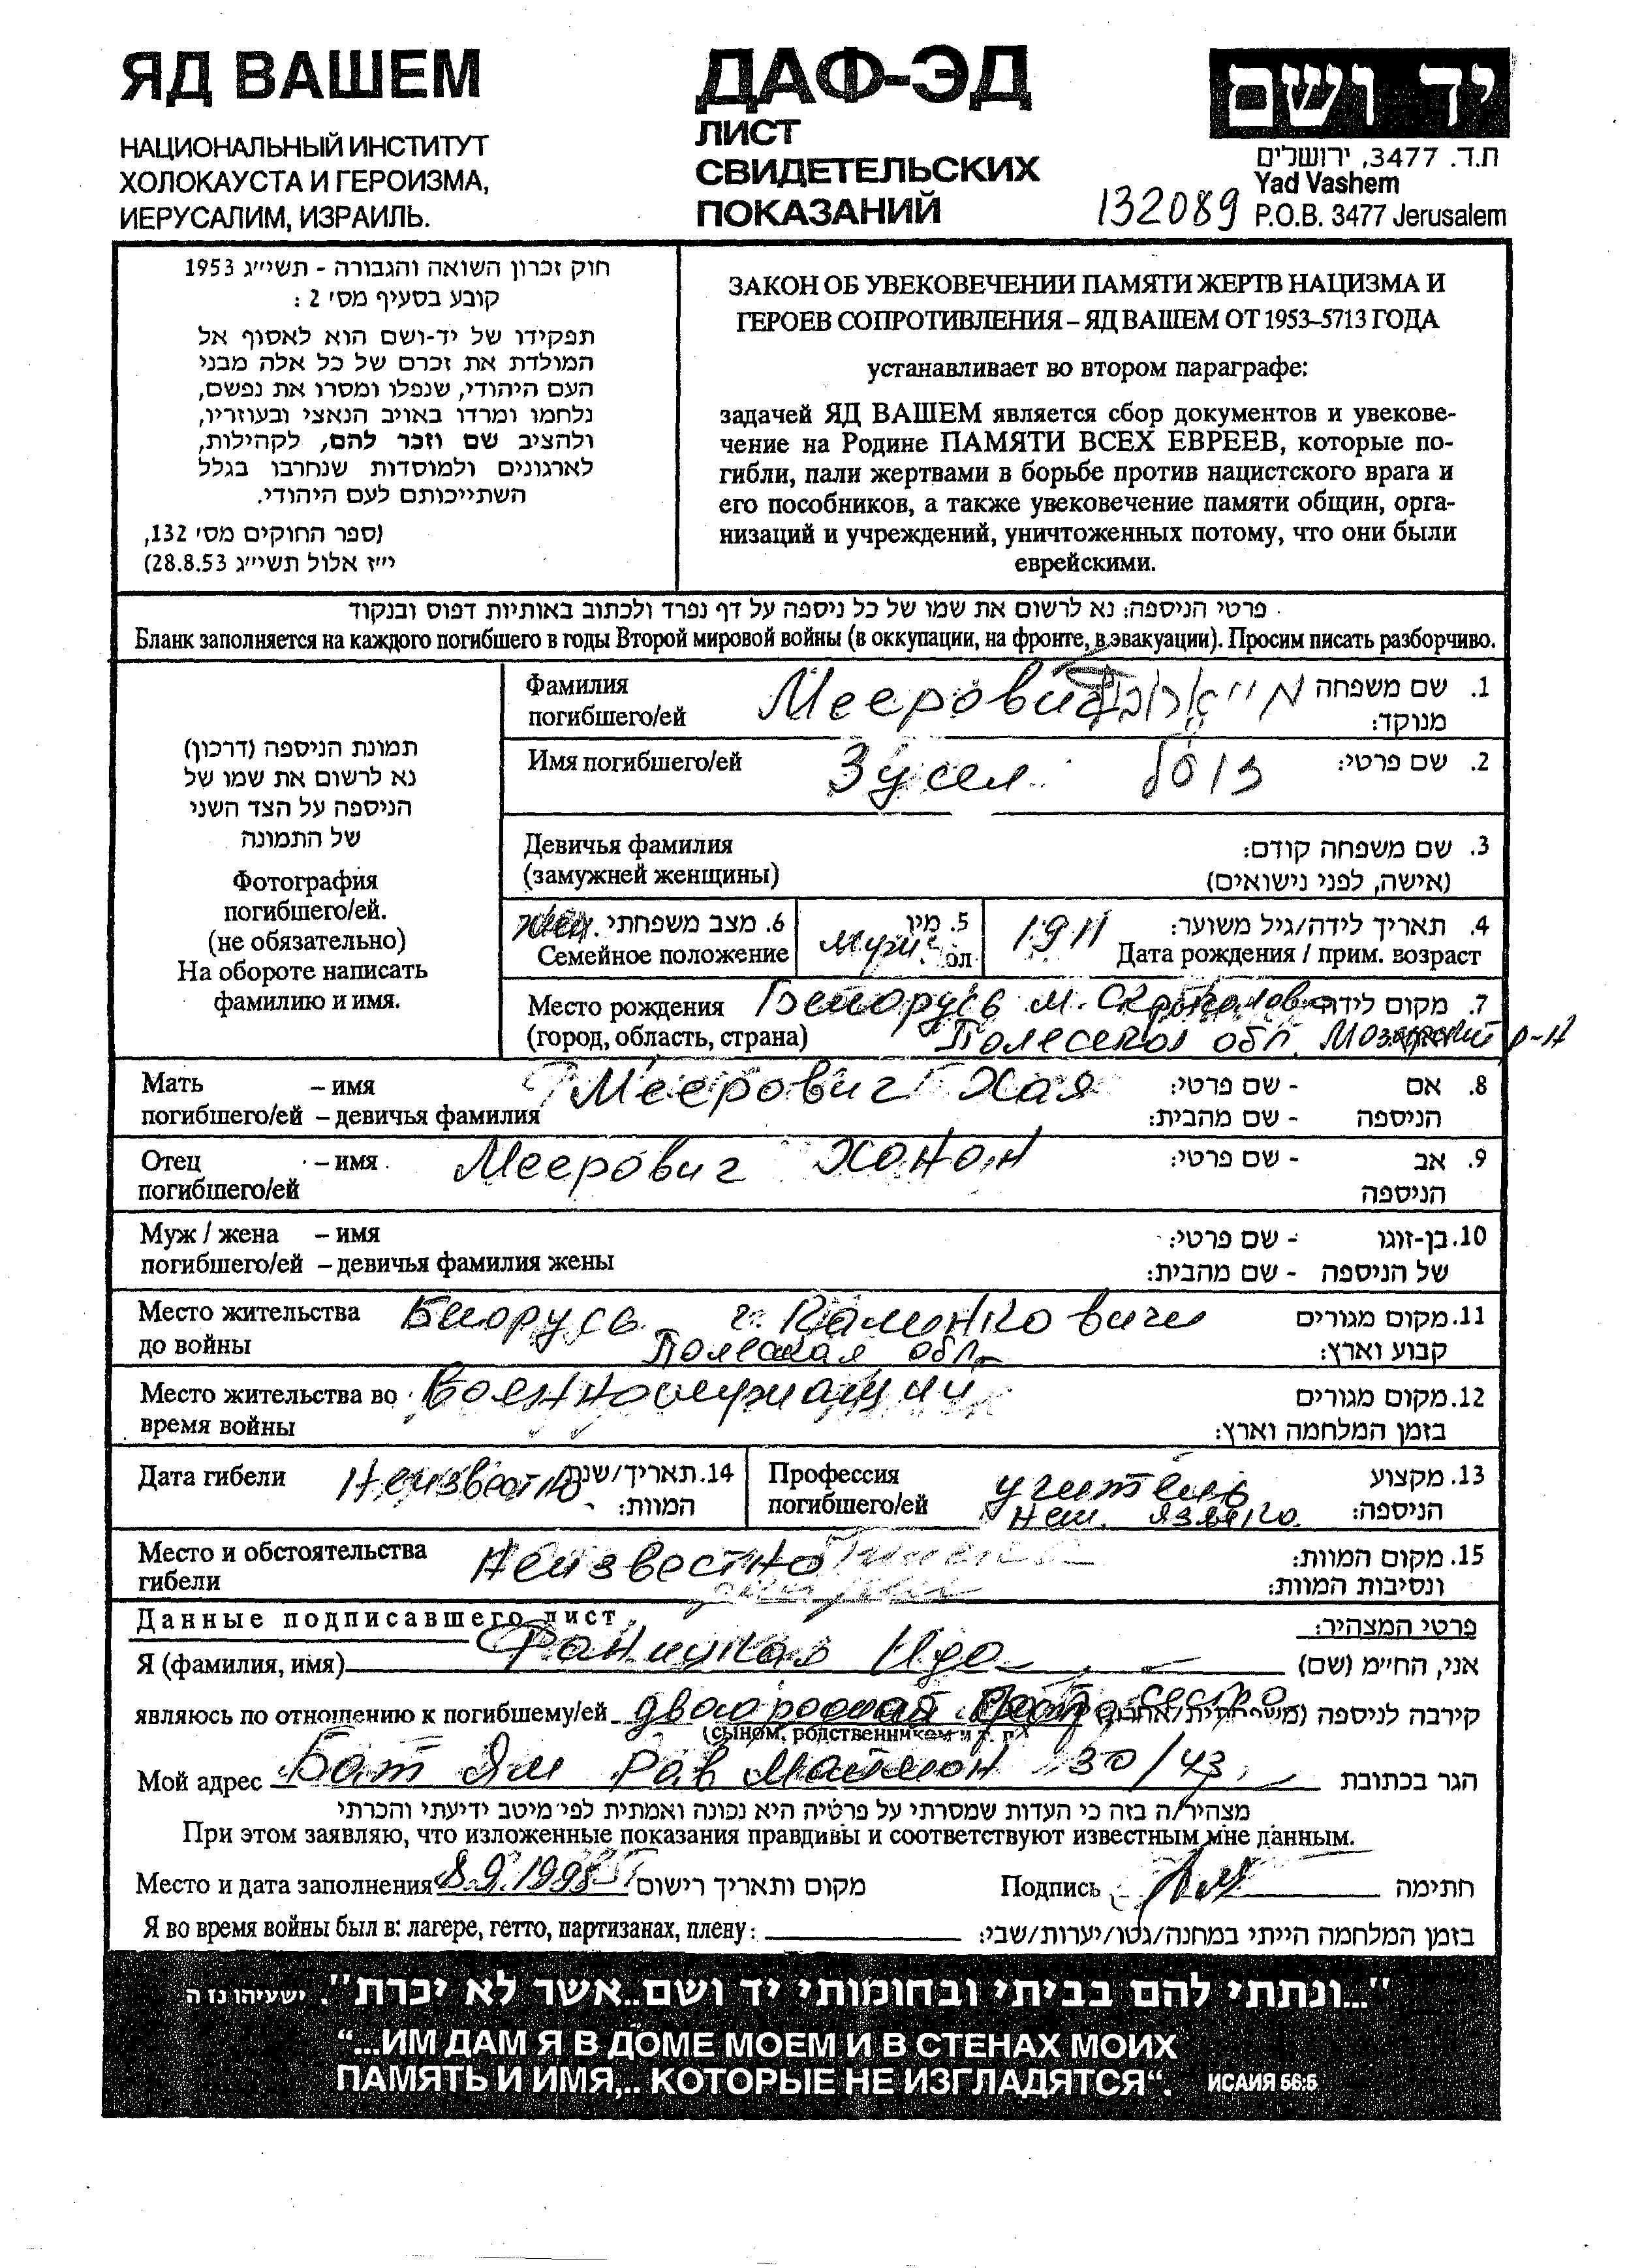 ЯД ВАШЕМ
НАЦИОНАЛЬНЫЙ ИНСТИТУТ
ХОЛОКАУСТА И ГЕРОИЗМА,
ИЕРУСАЛИМ, ИЗРАИЛЬ.
ДАФ-ЭД
ЛИСТ
СВИДЕТЕЛЬСКИХ
ПОКАЗАНИЙ
132089
יד ושם
ת.ד. 3477, ירושלים
Yad Vashem
P.O.B. 3477 Jerusalem
חוק זכרון השואה והגבורה - תשי״ג 1953
קובע בסעיף מס׳ 2 :
תפקידו של יד-ושם הוא לאסוף אל
המולדת את זכרם של כל אלה מבני
העם היהודי, שנפלו ומסרו את נפשם,
נלחמו ומרדו באויב הנאצי ובעוזריו,
ולהציב שם וזכר להם, לקהילות,
לארגונים ולמוסדות שנחרבו בגלל
השתייכותם לעם היהודי.
(ספר החוקים מס׳ 132,
י״ז אלול תשי״ג 28.8.53)
ЗАКОН ОБ УВЕКОВЕЧЕНИИ ПАМЯТИ ЖЕРТВ НАЦИЗМА И
ГЕРОЕВ СОПРОТИВЛЕНИЯ – ЯД ВАШЕМ ОТ 1953–5713 ГОДА
устанавливает во втором параграфе:
задачей ЯД ВАШЕМ является сбор документов и увекове-
чение на Родине ПАМЯТИ ВСЕХ ЕВРЕЕВ, которые по-
гибли, пали жертвами в борьбе против нацистского врага и
его пособников, а также увековечение памяти общин, орга-
низаций и учреждений, уничтоженных потому, что они были
еврейскими.
פרטי הניספה: נא לרשום את שמו של כל ניספה על דף נפרד ולכתוב באותיות דפוס ובנקוד
Бланк заполняется на каждого погибшего в годы Второй мировой войны (в оккупации, на фронте, в эвакуации). Просим писать разборчиво.
תמונת הניספה (דרכון)
נא לרשום את שמו של
הניספה על הצד השני
של התמונה
Фотография
погибшего/ей.
(не обязательно)
На обороте написать
фамилию и имя.
Фамилия Меерович 1. שם משפחה
погибшего/ей מנוקד:
Имя погибшего/ей Зусел זוסל 2. שם פרטי:
Девичья фамилия 3. שם משפחה קודם:
(замужней женщины) (אישה, לפני נישואים)
6. מצב משפחתי 5. מין 1911 4. תאריך לידה/גיל משוער:
Семейное положение Дата рождения / прим. возраст
Место рождения Белорусь м. 7. מקום לידה
(город, область, страна) Полесской обл. Мозырский р-н
Мать – имя Меерович Хая 8. אם - שם פרטי:
погибшего/ей – девичья фамилия הניספה - שם מהבית:
Отец – имя Меерович Хонон 9. אב - שם פרטי:
погибшего/ей הניספה
Муж / жена – имя 10. בן-זוגו - שם פרטי:
погибшего/ей – девичья фамилия жены של הניספה - שם מהבית:
Место жительства Билорусь г. Калинковичи 11. מקום מגורים
до войны Полеская обл. קבוע וארץ:
Место жительства во Военнослужащий 12. מקום מגורים
время войны בזמן המלחמה וארץ:
Дата гибели Неизвестно 14. תאריך/שנת המוות:
Профессия учитель 13. מקצוע
погибшего/ей нем. языка הניספה:
Место и обстоятельства Неизвестно 15. מקום המוות:
гибели ונסיבות המוות:
Данные подписавшего лист פרטי המצהיר:
Я (фамилия, имя) Ида אני, החי״מ (שם)
являюсь по отношению к погибшему/ей двоюродная сестра קירבה לניספה
(сыном, родственником и т. п.)
Мой адрес Бат Ям Рав Маймон 30/43 הגר בכתובת
מצהיר/ה בזה כי העדות שמסרתי על פרטיה היא נכונה ואמתית לפי מיטב ידיעתי והכרתי
При этом заявляю, что изложенные показания правдивы и соответствуют известным мне данным.
Место и дата заполнения 8.9.1998 מקום ותאריך רישום Подпись חתימה
Я во время войны был в: лагере, гетто, партизанах, плену: בזמן המלחמה הייתי במחנה/גטו/יערות/שבי:
"...ונתתי להם בביתי ובחומותי יד ושם...אשר לא יכרת". ישעיהו נז ה
“...ИМ ДАМ Я В ДОМЕ МОЕМ И В СТЕНАХ МОИХ
ПАМЯТЬ И ИМЯ,.. КОТОРЫЕ НЕ ИЗГЛАДЯТСЯ“. ИСАИЯ 56:5